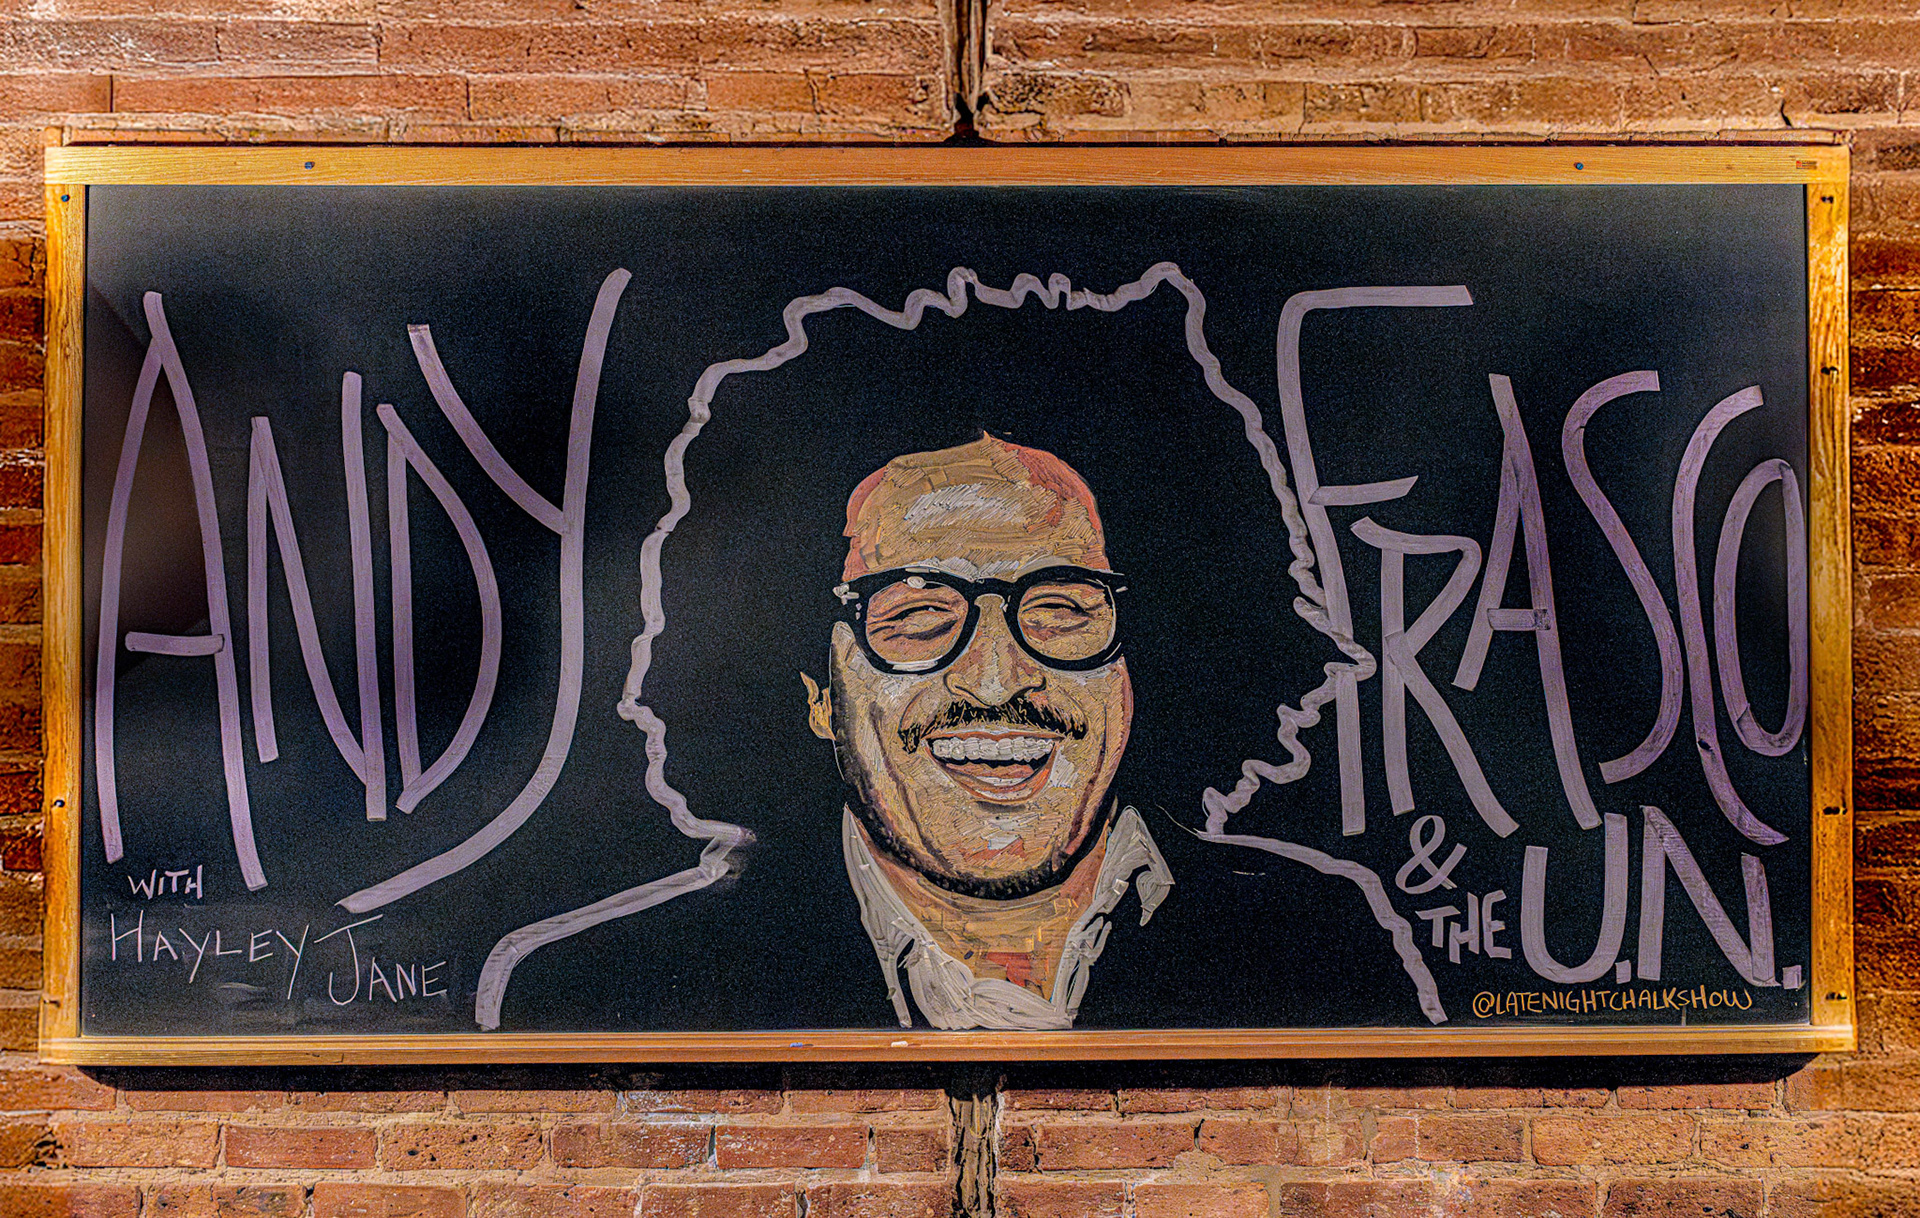 ANDY
FRASCO
& THE U.N.
WITH
HAYLEY JANE
@LATENIGHTCHALKSHOW